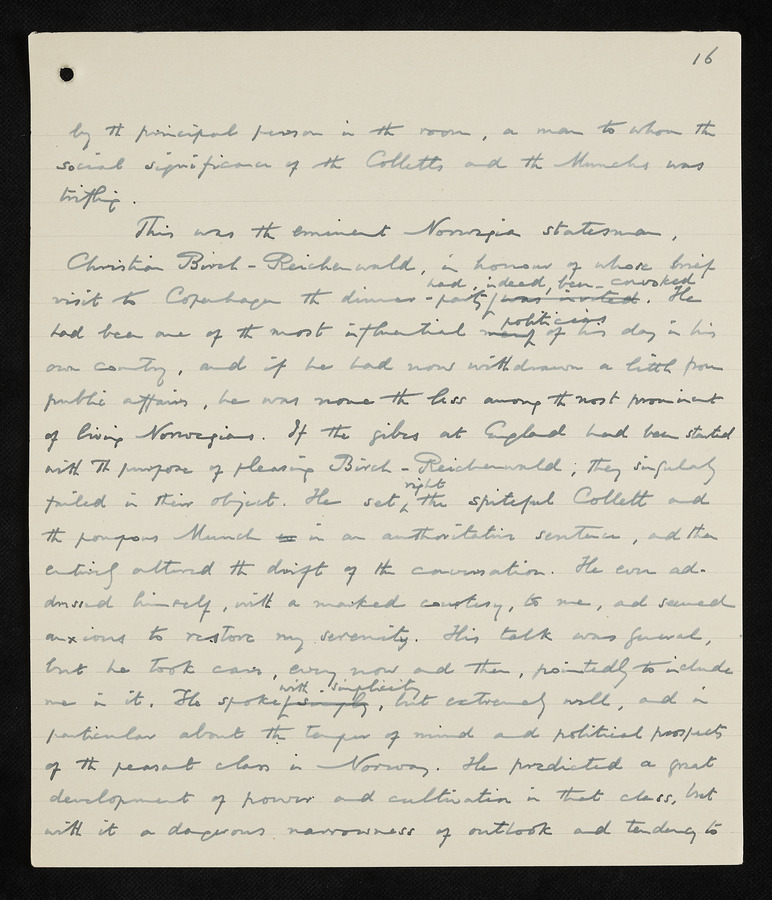 16
by th principal person in th room, a man to whom th
social significance of th Colletts and th Munchs was
trifling.
This was th eminent Norwegian statesman,
Christian Birch-Reichenwald, in honour of whose brief
had, indeed, been convoked
visit to Copenhagen th dinner-party was invited. He
politicians
had been one of th most influential men of his day in his
own country, and if he had now withdrawn a little from
public affairs, he was none the less among th most prominent
of living Norwegians. If the gibes at England had been started
with th purpose of pleasing Birch-Reichenwald, they singularly
right
failed in their object. He set the spiteful Collett and
th pompous Munch in an authoritative sentence, and then
entirely altered th drift of th conversation. He even ad-
dressed himself, with a marked courtesy, to me, and seemed
anxious to restore my serenity. His talk was general,
but he took care, every now and then, pointedly to include
with simplicity
me in it. He spoke simply, but extremely well, and in
particular about th temper of mind and political prospects
of th peasant class in Norway. He predicted a great
development of power and cultivation in that class, but
with it a dangerous narrowness of outlook and tendency to